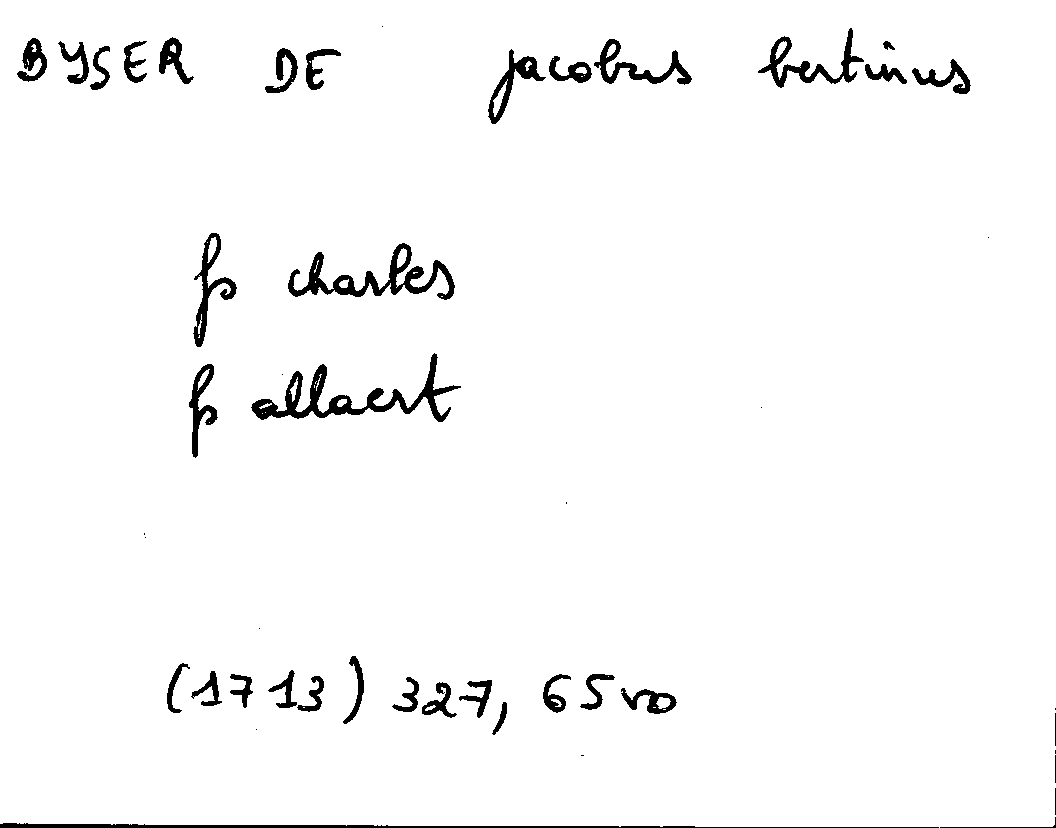 BYSER DE jacobus bertinus
fs charles
fs allaert
(1713) 327, 65 vo